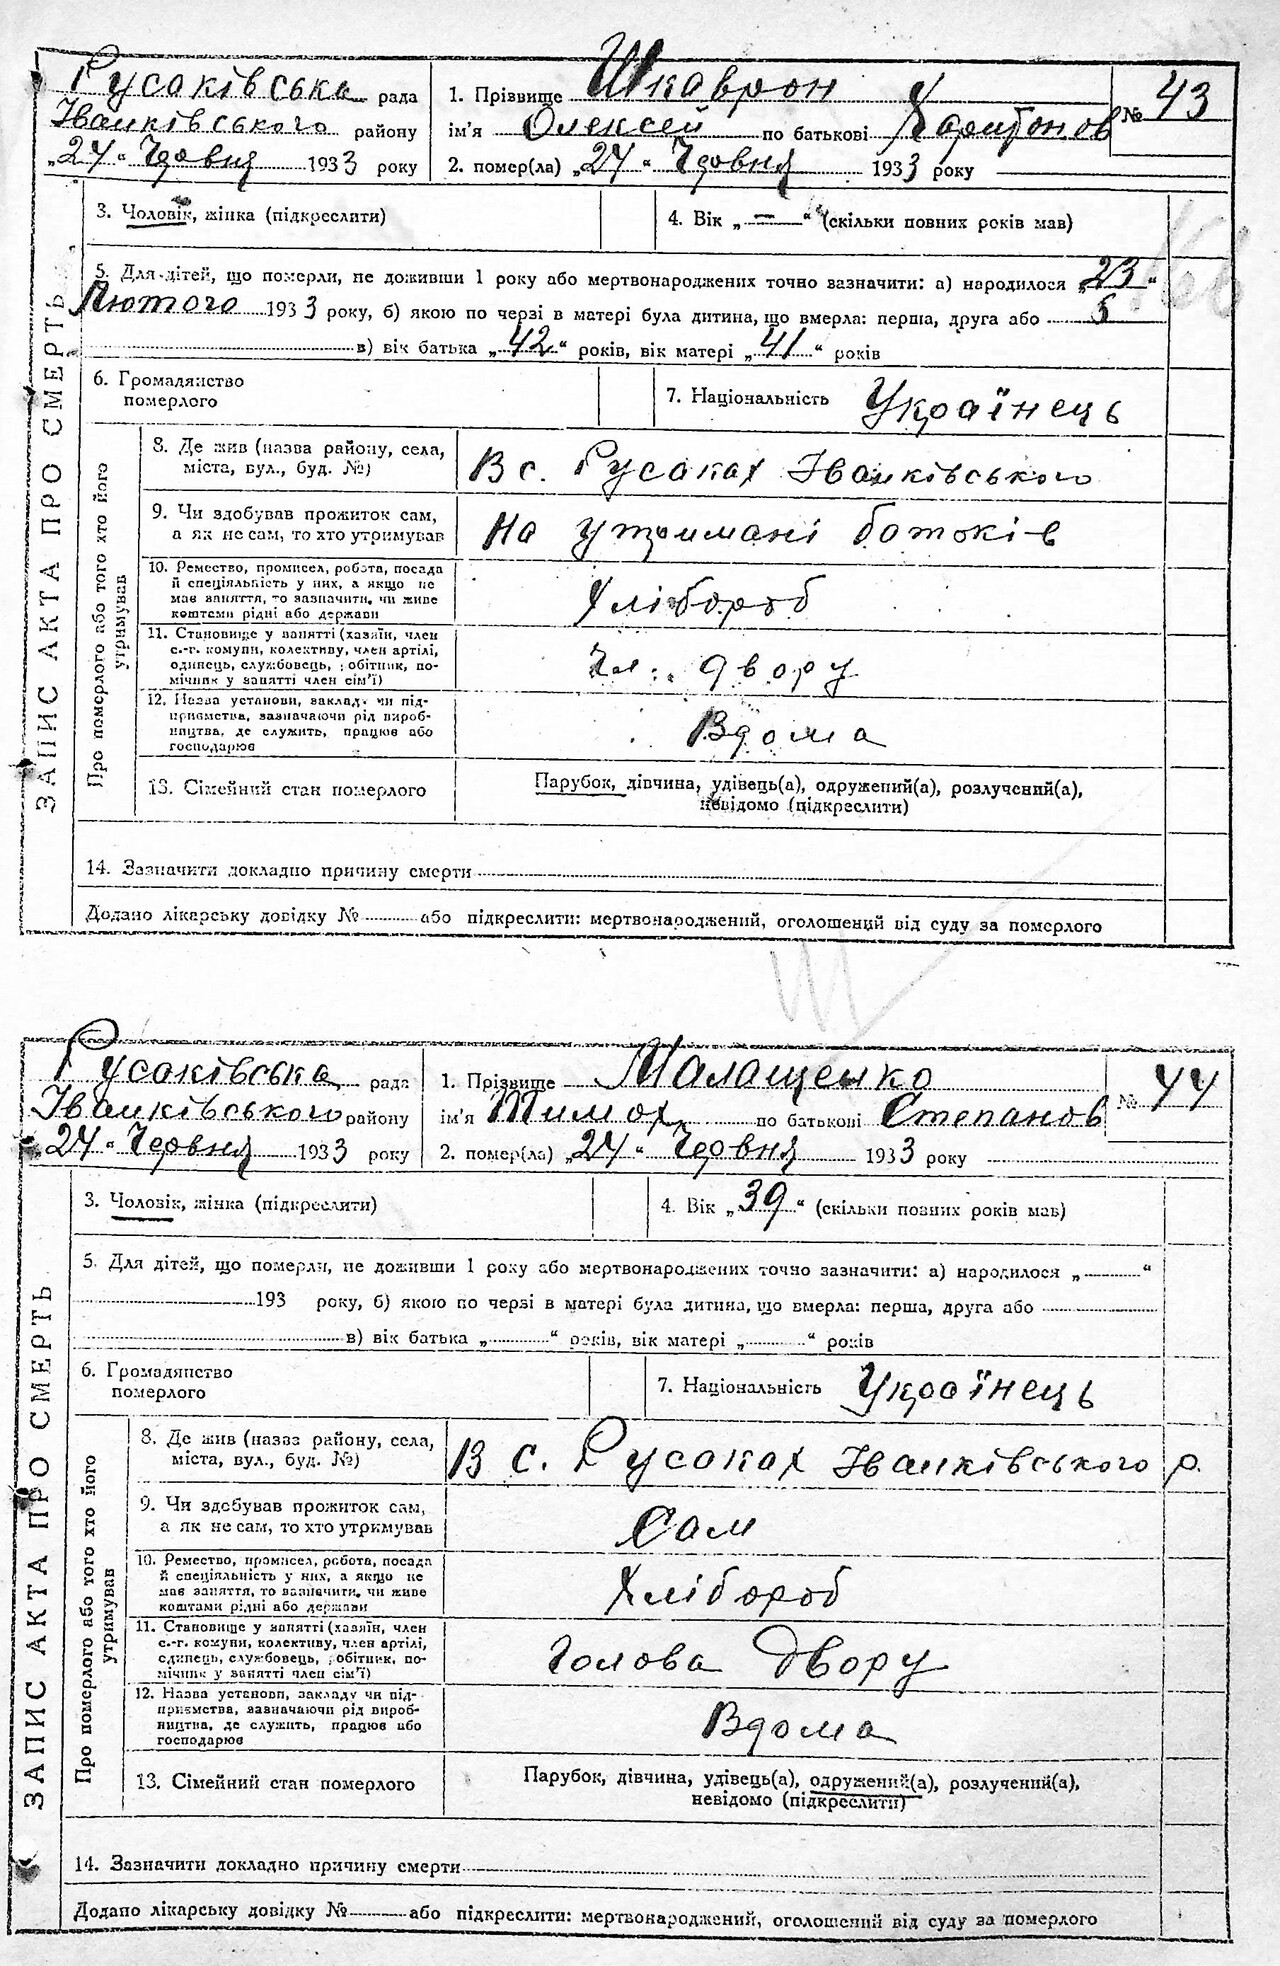 Русаківська рада
Іванківського району
„24“ Червня 1933 року
1. Прізвище Шкаврон
ім'я Олексей по батькові Харитонов
2. помер(ла) „24“ Червня 1933 року
№ 43
ЗАПИС АКТА ПРО СМЕРТЬ
3. Чоловік, жінка (підкреслити)
4. Вік „—“ (скільки повних років мав)
5. Для дітей, що померли, не доживши 1 року або мертвонароджених точно зазначити: а) народилося „23“
Лютого 1933 року, б) якою по черзі в матері була дитина, що вмерла: перша, друга або 5
в) вік батька „42“ років, вік матері „41“ років
6. Громадянство
померлого
7. Національність Українець
Про померлого або того хто його
утримував
8. Де жив (назва району, села,
міста, вул., буд. №)
В с. Русаках Іванківського
9. Чи здобував прожиток сам,
а як не сам, то хто утримував
На утримані батьків
10. Ремество, промисел, робота, посада
й спеціяльність у них, а якщо не
має заняття, то зазначити, чи живе
коштами рідні або держави
Хлібороб
11. Становище у занятті (хазяїн, член
с.-г. комуни, колективу, член артілі,
одинець, службовець, обітник, по-
мічник у занятті член сім'ї)
Чл. двору
12. Назва установи, заклад. чи під-
приємства, зазначаючи рід вироб-
ництва, де служить, працює або
господарює
Вдома
13. Сімейний стан померлого
Парубок, дівчина, удівець(а), одружений(а), розлучений(а),
невідомо (підкреслити)
14. Зазначити докладно причину смерти
Додано лікарську довідку № або підкреслити: мертвонароджений, оголошений від суду за померлого
Русаківська рада
Іванківського району
„24“ Червня 1933 року
1. Прізвище Малащенко
ім'я Тимох по батькові Степанов
2. помер(ла) „24“ Червня 1933 року
№ 44
ЗАПИС АКТА ПРО СМЕРТЬ
3. Чоловік, жінка (підкреслити)
4. Вік „39“ (скільки повних років мав)
5. Для дітей, що померли, не доживши 1 року або мертвонароджених точно зазначити: а) народилося „ “
193 року, б) якою по черзі в матері була дитина, що вмерла: перша, друга або
в) вік батька „ “ років, вік матері „ “ років
6. Громадянство
померлого
7. Національність Українець
Про померлого або того хто його
утримував
8. Де жив (назва району, села,
міста, вул., буд. №)
В с. Русаках Іванківського р.
9. Чи здобував прожиток сам,
а як не сам, то хто утримував
Сам
10. Ремество, промисел, робота, посада
й спеціяльність у них, а якщо не
має заняття, то зазначити, чи живе
коштами рідні або держави
Хлібороб
11. Становище у занятті (хазяїн, член
с.-г. комуни, колективу, член артілі,
одинець, службовець, обітник, по-
мічник у занятті член сім'ї)
Голова двору
12. Назва установи, закладу чи під-
приємства, зазначаючи рід вироб-
ництва, де служить, працює або
господарює
Вдома
13. Сімейний стан померлого
Парубок, дівчина, удівець(а), одружений(а), розлучений(а),
невідомо (підкреслити)
14. Зазначити докладно причину смерти
Додано лікарську довідку № або підкреслити: мертвонароджений, оголошений від суду за померлого